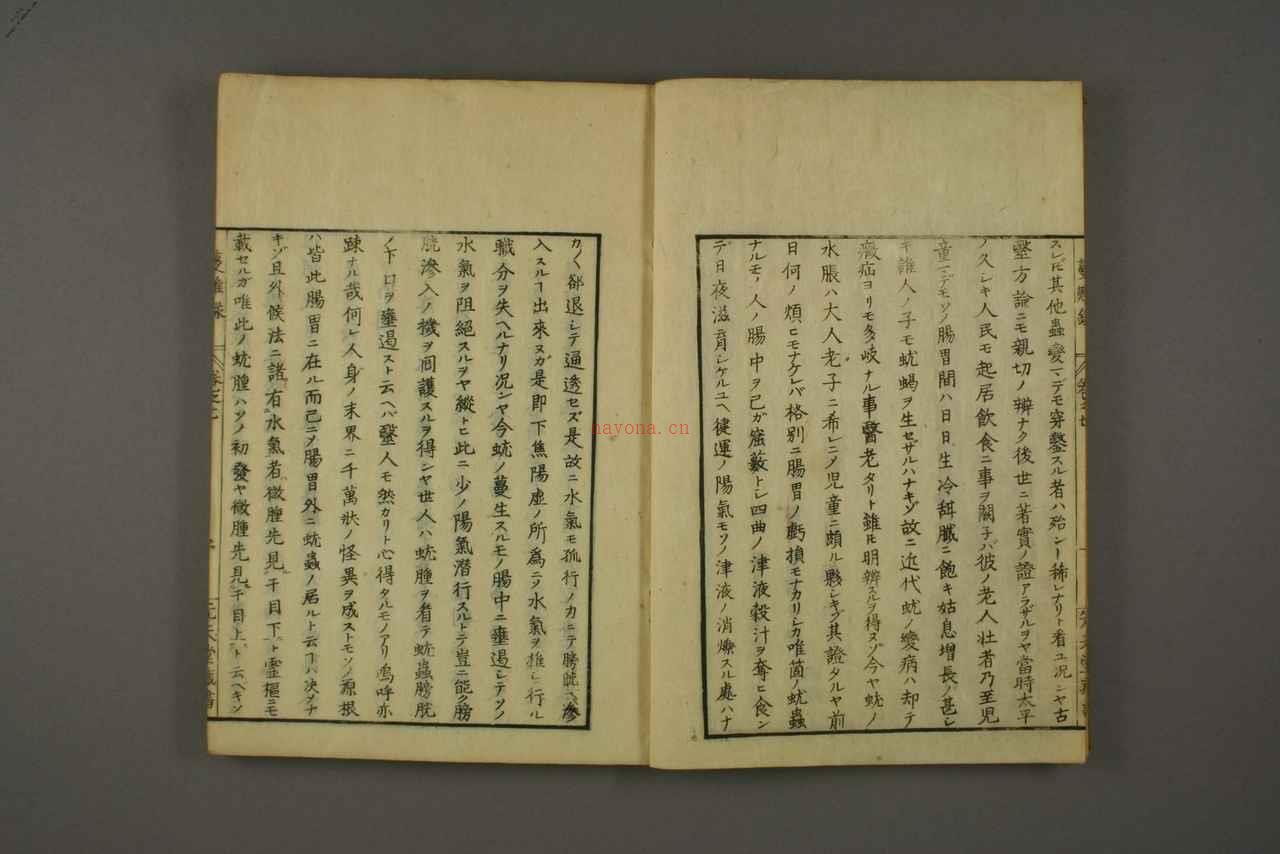 スレ𪜈其他蟲變マデモ穿鑿スル者ハ殆ンー稀レナリト看ユ況ンヤ古
醫方論ニモ親切ノ辨ナク後世ニ著實ノ證アラザルヲヤ當時太平
ノ久シキ人民モ起居飲食ニ事ヲ闕子バ彼ノ老人壯者乃至児
童マデモソノ腸胃間ハ日日生冷甜膩ニ飽キ姑息増長ノ甚シ
キ誰人ノ子モ蚘蝎ヲ生セザルハナキゾ故ニ近代蚘ノ變病ハ却テ
癥疝ヨリモ多岐ナル事醫老タリト雖𪜈明辨スルヲ得ヌゾ今ヤ蚘ノ
水脹ハ大人老子ニ希レニ乄児童ニ頗ル夥シキゾ其證タルヤ前
日何ノ煩ヒモナケレバ格別ニ腸胃ノ虧損モナカリシカ唯箇ノ蚘蟲
ナルモノ人ノ腸中ヲ己ガ窟藪トシ四曲ノ津液穀汁ヲ奪ヒ食ン
デ日夜滋育シケルユヘ健運ノ陽氣モソノ津液ノ消爍スル處ハナ
カク郤退シテ通透セズ是故ニ水氣モ孤行ノカニテ膀胱ヘ滲
入スルヿ出來ヌガ是即下焦陽虚ノ所為ニソ水氣ヲ推シ行ル
職分ヲ失ヘルナリ況ンヤ今蚘ノ蔓生スルモノ腸中ニ壅遏シテソノ
水氣ヲ阻絕スルヲヤ縱トヒ此ニ少ノ陽氣潜行スルトテ豈ニ能ク膀
胱滲入ノ機ヲ囘護スルヲ得ンヤ世人ハ蚘腫ヲ看テ蚘蟲膀胱
ノ下口ヲ壅遏スト云ヘバ醫人モ然カリト心得タルモノアリ嗚呼亦
踈ナル哉何レ人身ノ末界ニ千萬狀ノ怪異ヲ成ストモソノ源根
ハ皆此腸胃ニ在ル而己ニソ腸胃外ニ蚘蟲ノ居ルト云フヿハ決ソナ
キゾ且外候法ニ諸有水氣者微腫先見于目下ト靈樞ニモ
載セルガ唯此ノ蚘腫ハソノ初發ヤ微腫先見于目上ト云ヘキソ
nayona.cn